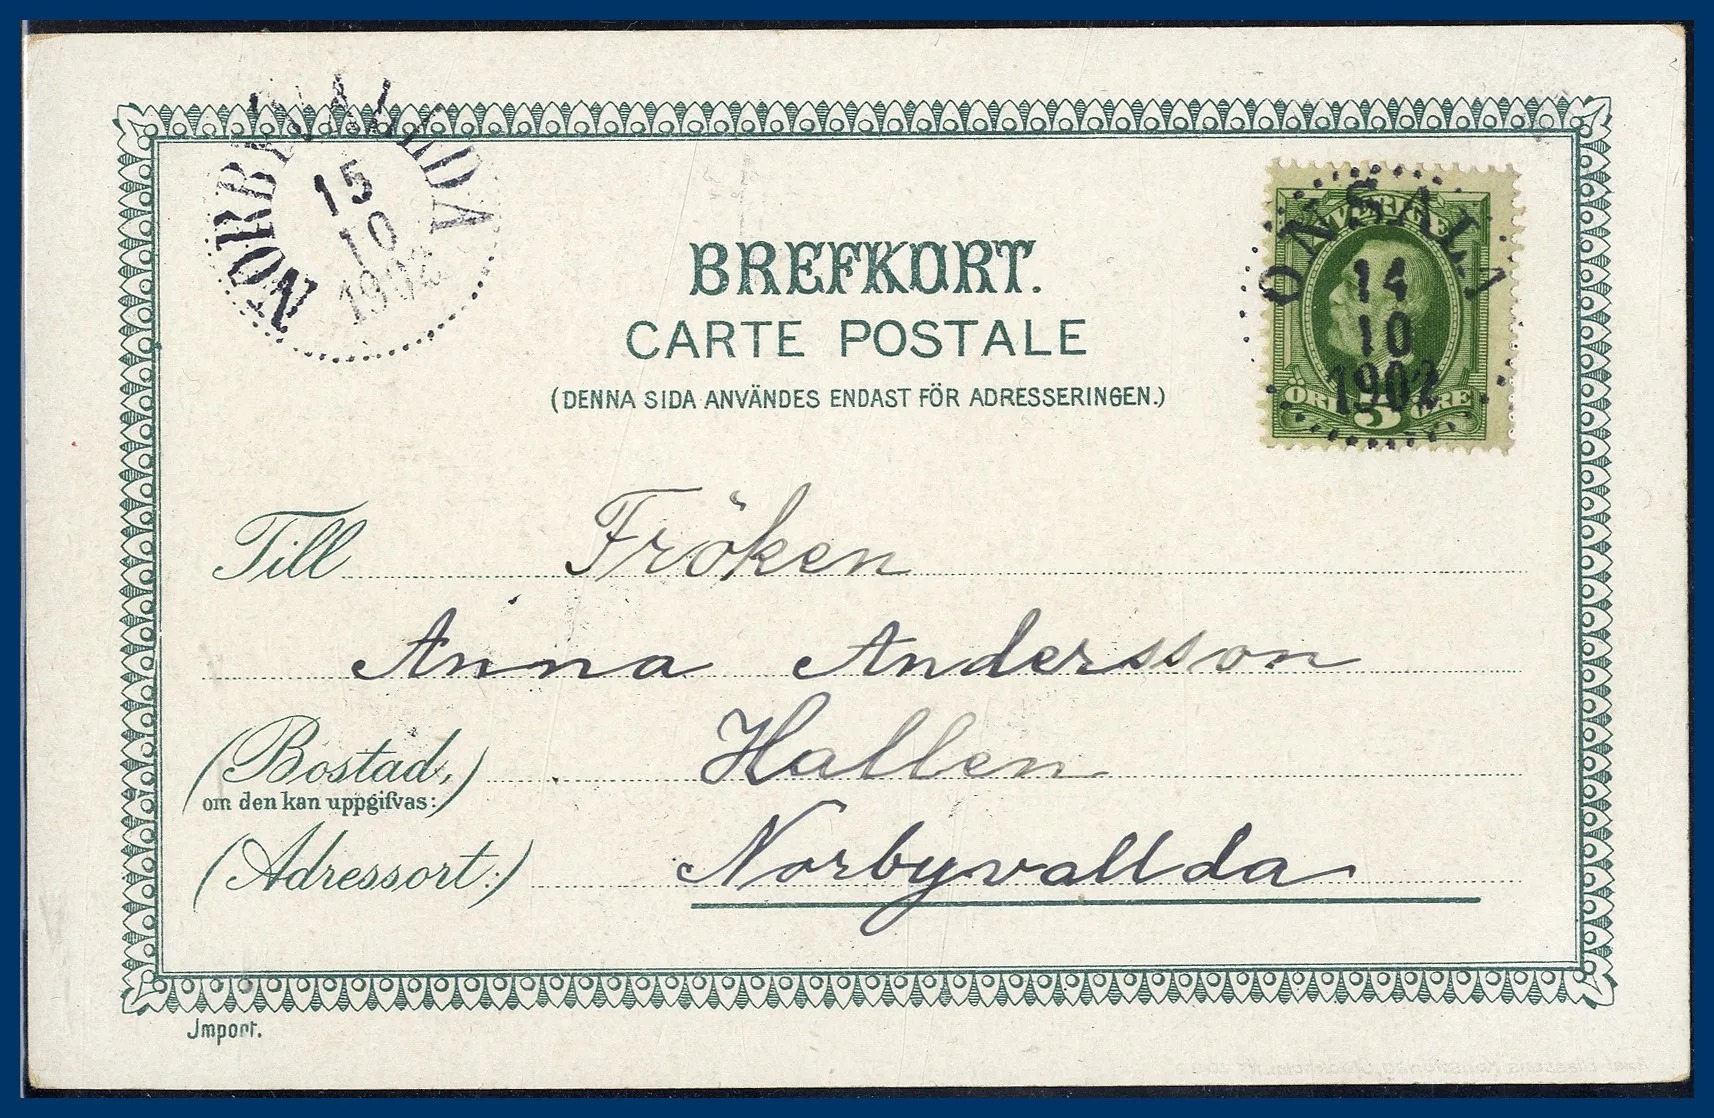 NORBYVALLDA
15
10
1902
ONSALA
14
10
1902
SVERIGE
ÖRE 5 ÖRE
BREFKORT.
CARTE POSTALE
(DENNA SIDA ANVÄNDES ENDAST FÖR ADRESSERINGEN.)
Till Fröken
Anna Andersson
(Bostad, Hallen
om den kan uppgifvas:)
(Adressort:) Norbyvallda
Import.